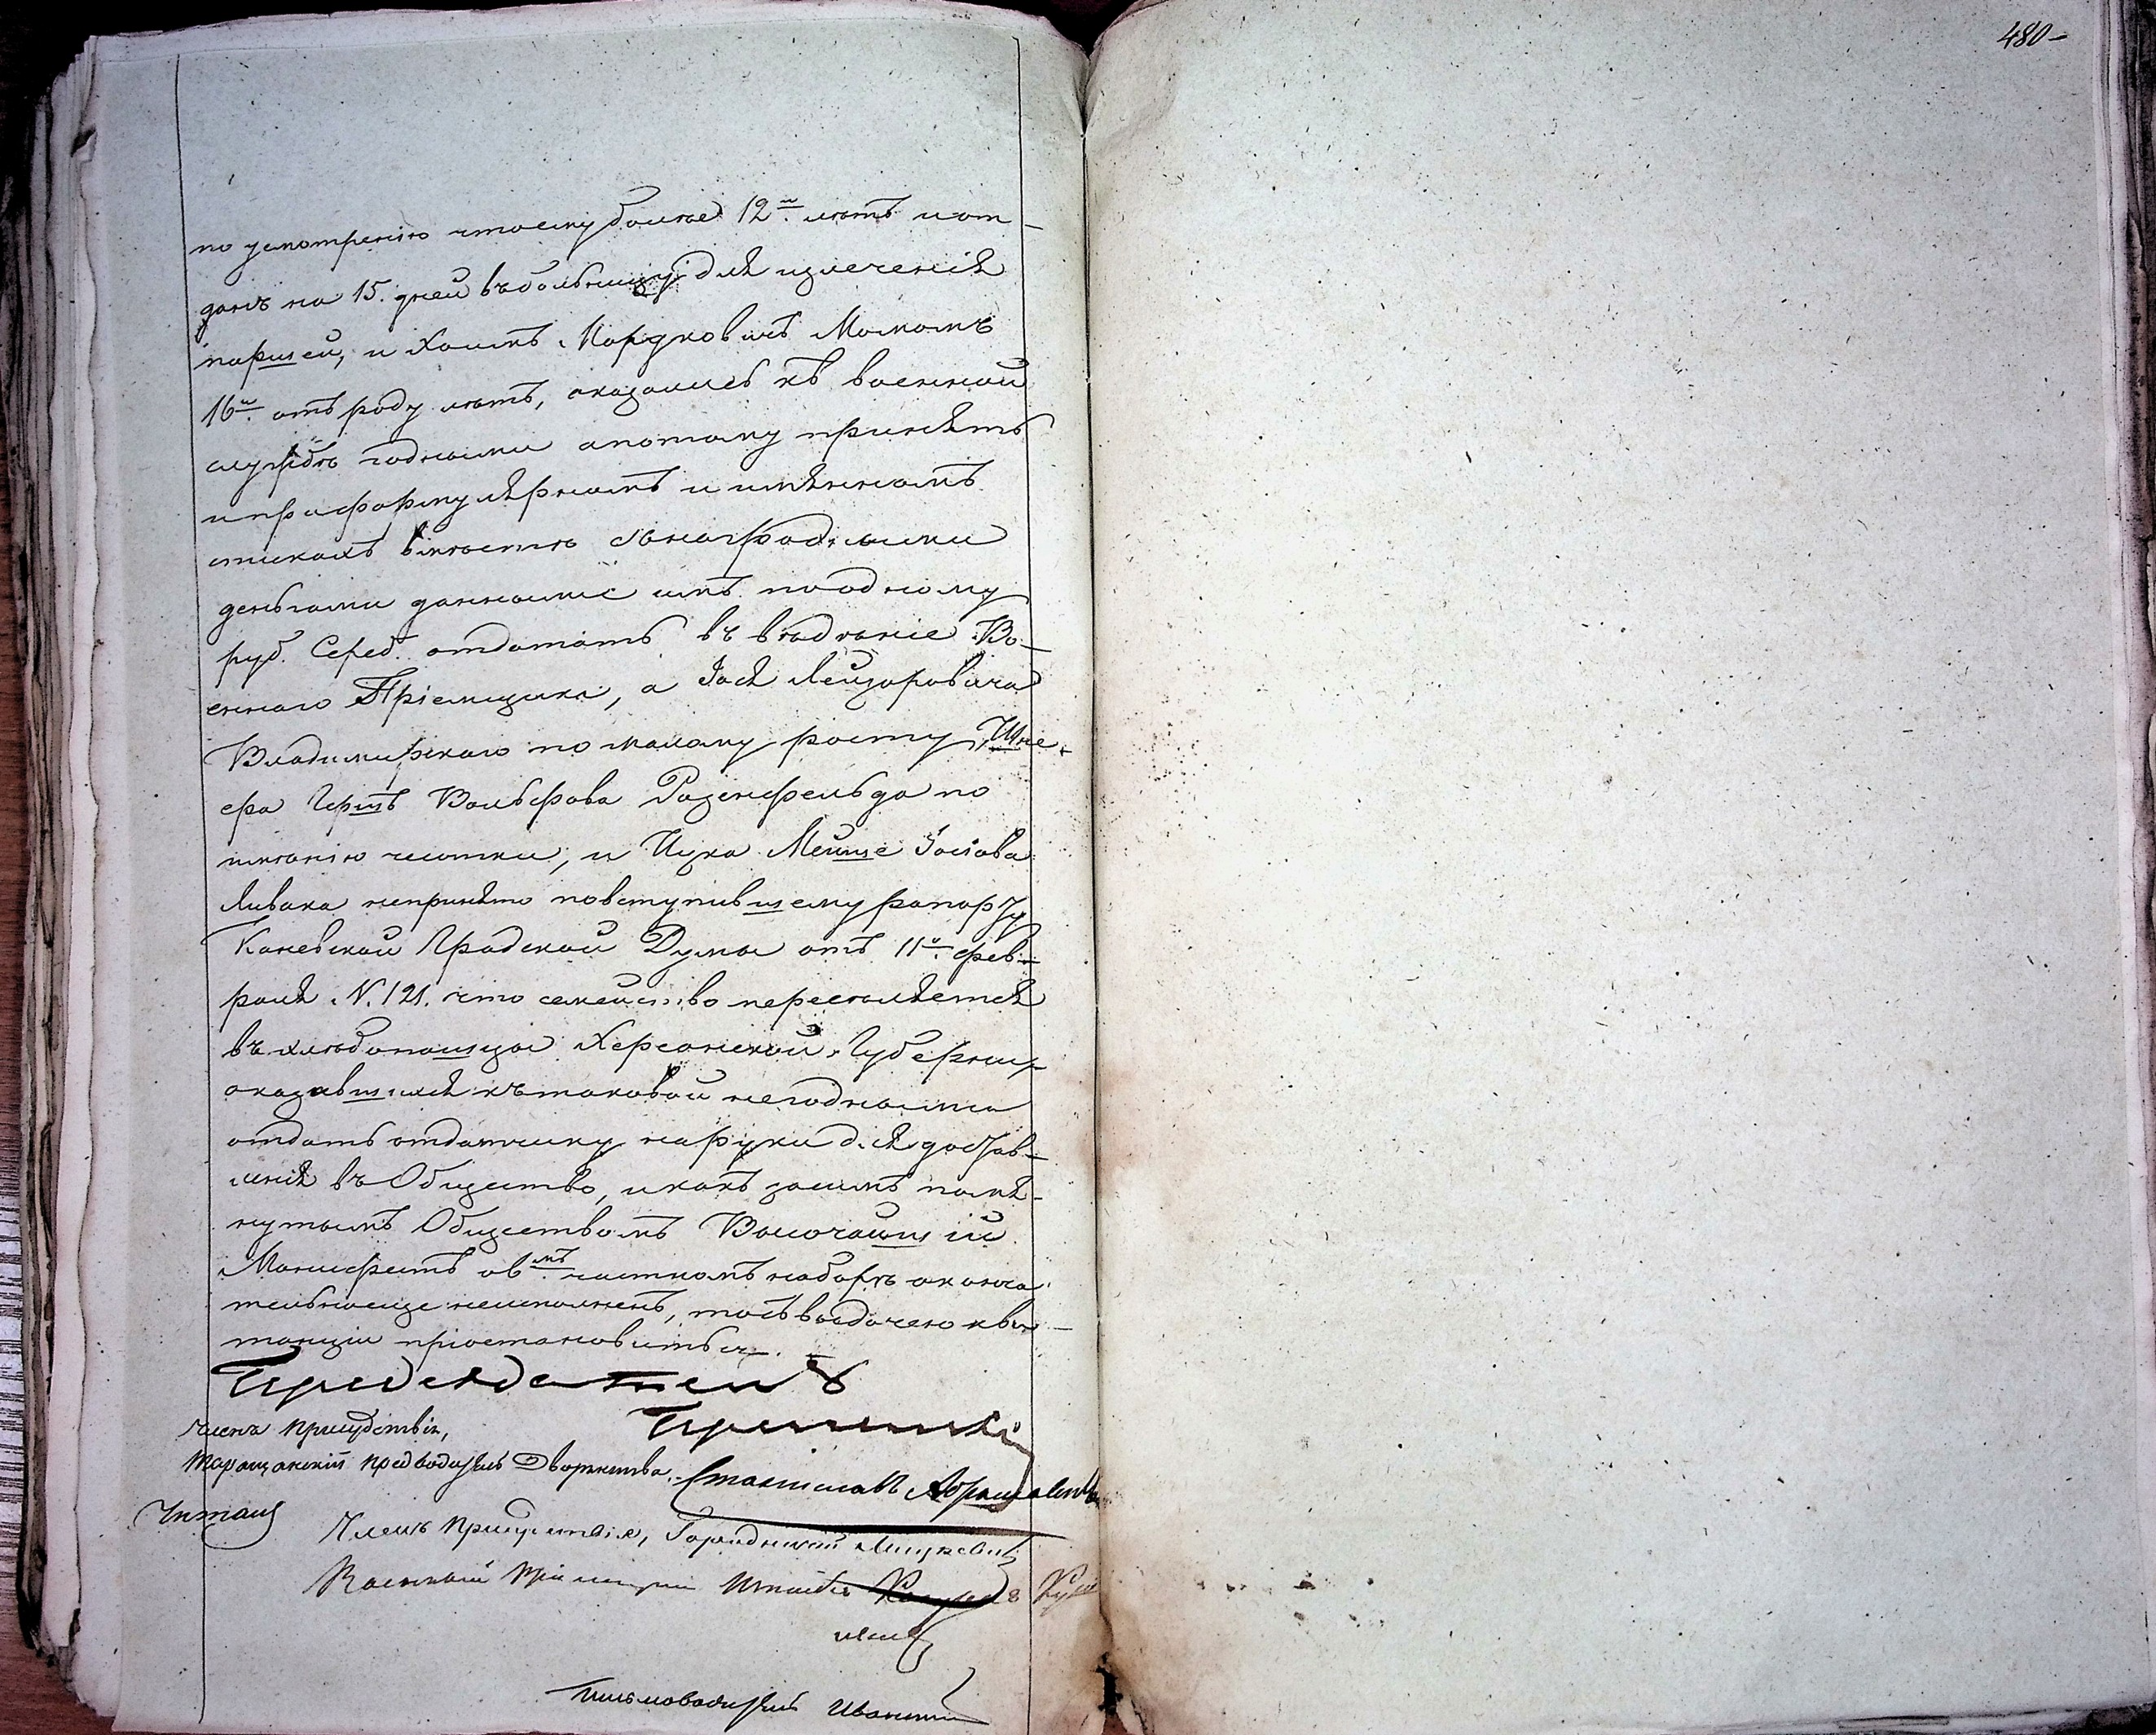 480-
по усмотренію что ему болѣе 12<sup>и</sup>. лѣтъ и от-
данъ на 15. дней въ больницу для излеченія
паршей, и Хаимъ Мордковичъ
16<sup>и</sup>. отъ роду лѣтъ, оказались къ военной
службѣ годными а потому принять
и при формулярномъ и имянномъ
спискахъ вмѣстѣ съ наградными
деньгами данными имъ по одному
руб. Сереб. отдать въ вѣдѣніе Во-
еннаго Пріемщика, а Іося Лейзоровича
Владимирскаго по малому росту, Шне-
ера Герша Вольфова Розенфельда по
имѣнію чесотки, и Ицка Мейше Іосіова
Ливака непринято по вступившему рапорту
Каневской Градской Думы отъ 11<sup>и</sup>. фев-
раля N. 121. что семейство переселяется
въ хлѣбопашцы Херсонской Губерніи,
оказавшимися къ таковой негодными
отдать отдатчику на руки для достав-
ленія въ Общество, и какъ засимъ помя-
нутымъ Обществомъ Высочайшій
Манифестъ о частномъ наборѣ оконча-
тельно еще неисполненъ, то съ выдачею кви-
танціи пріостановиться.
Предсѣдатель
Членъ Присудствія,
Таращанскій Предводитель Дворянства. Станиславъ
Читалъ
Членъ Присутствія, Городничій
Военный Пріемщикъ
Письмоводитель